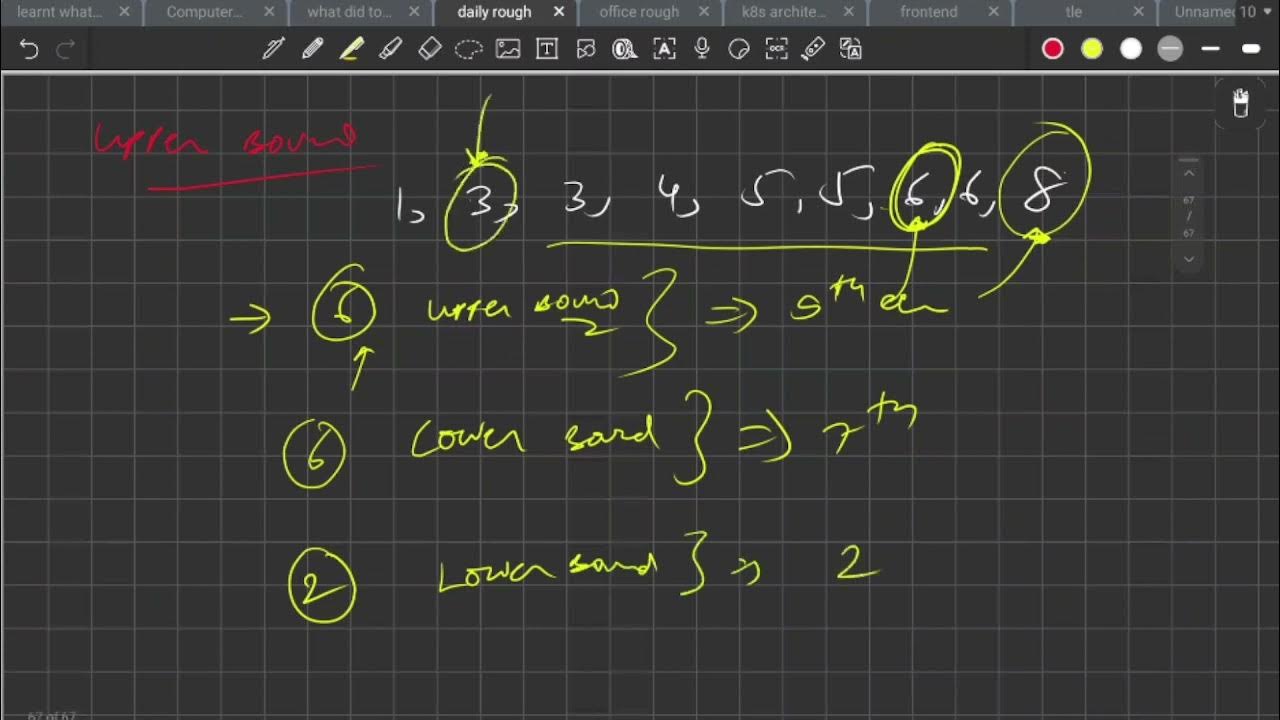 learnt what... × Computer... × what did to... × daily rough × office rough × k8s archite... × frontend × tle × Unnamed 10
OCR
upper bound
1, 3, 3, 4, 5, 5, 6, 6, 8
67
/
67
→ 6 upper bound } ⇒ 9th
6 Lower bound } ⇒ 7th
2 Lower bound } ⇒ 2
67 of 67